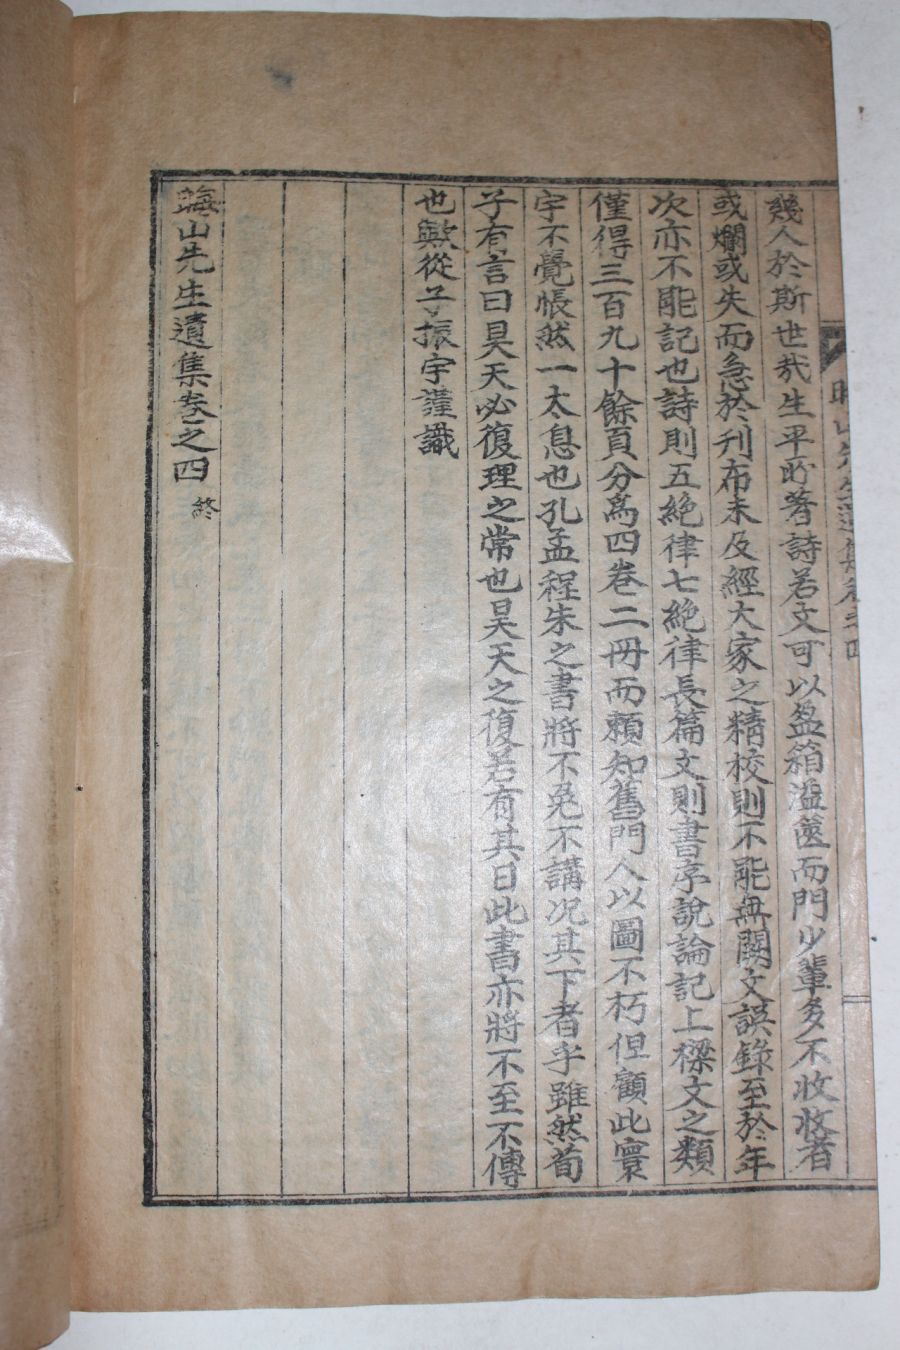 晦山先生遺集卷之四
幾人於斯世哉生平所著詩若文可以盈箱溢篋而門少輩多不收收者
或爛或失而急於刊布未及經大家之精校則不能無闕文誤錄至於年
次亦不能記也詩則五絶律七絶律長篇文則書序說論記上樑文之類
僅得三百九十餘頁分爲四卷二冊而賴知舊門人以圖不朽但顧此寰
宇不覺悵然一太息也孔孟程朱之書將不免不講况其下者乎雖然荀
子有言曰昊天必復理之常也昊天之復若有其日此書亦將不至不傳
也歟從子振宇謹識
晦山先生遺集卷之四 終